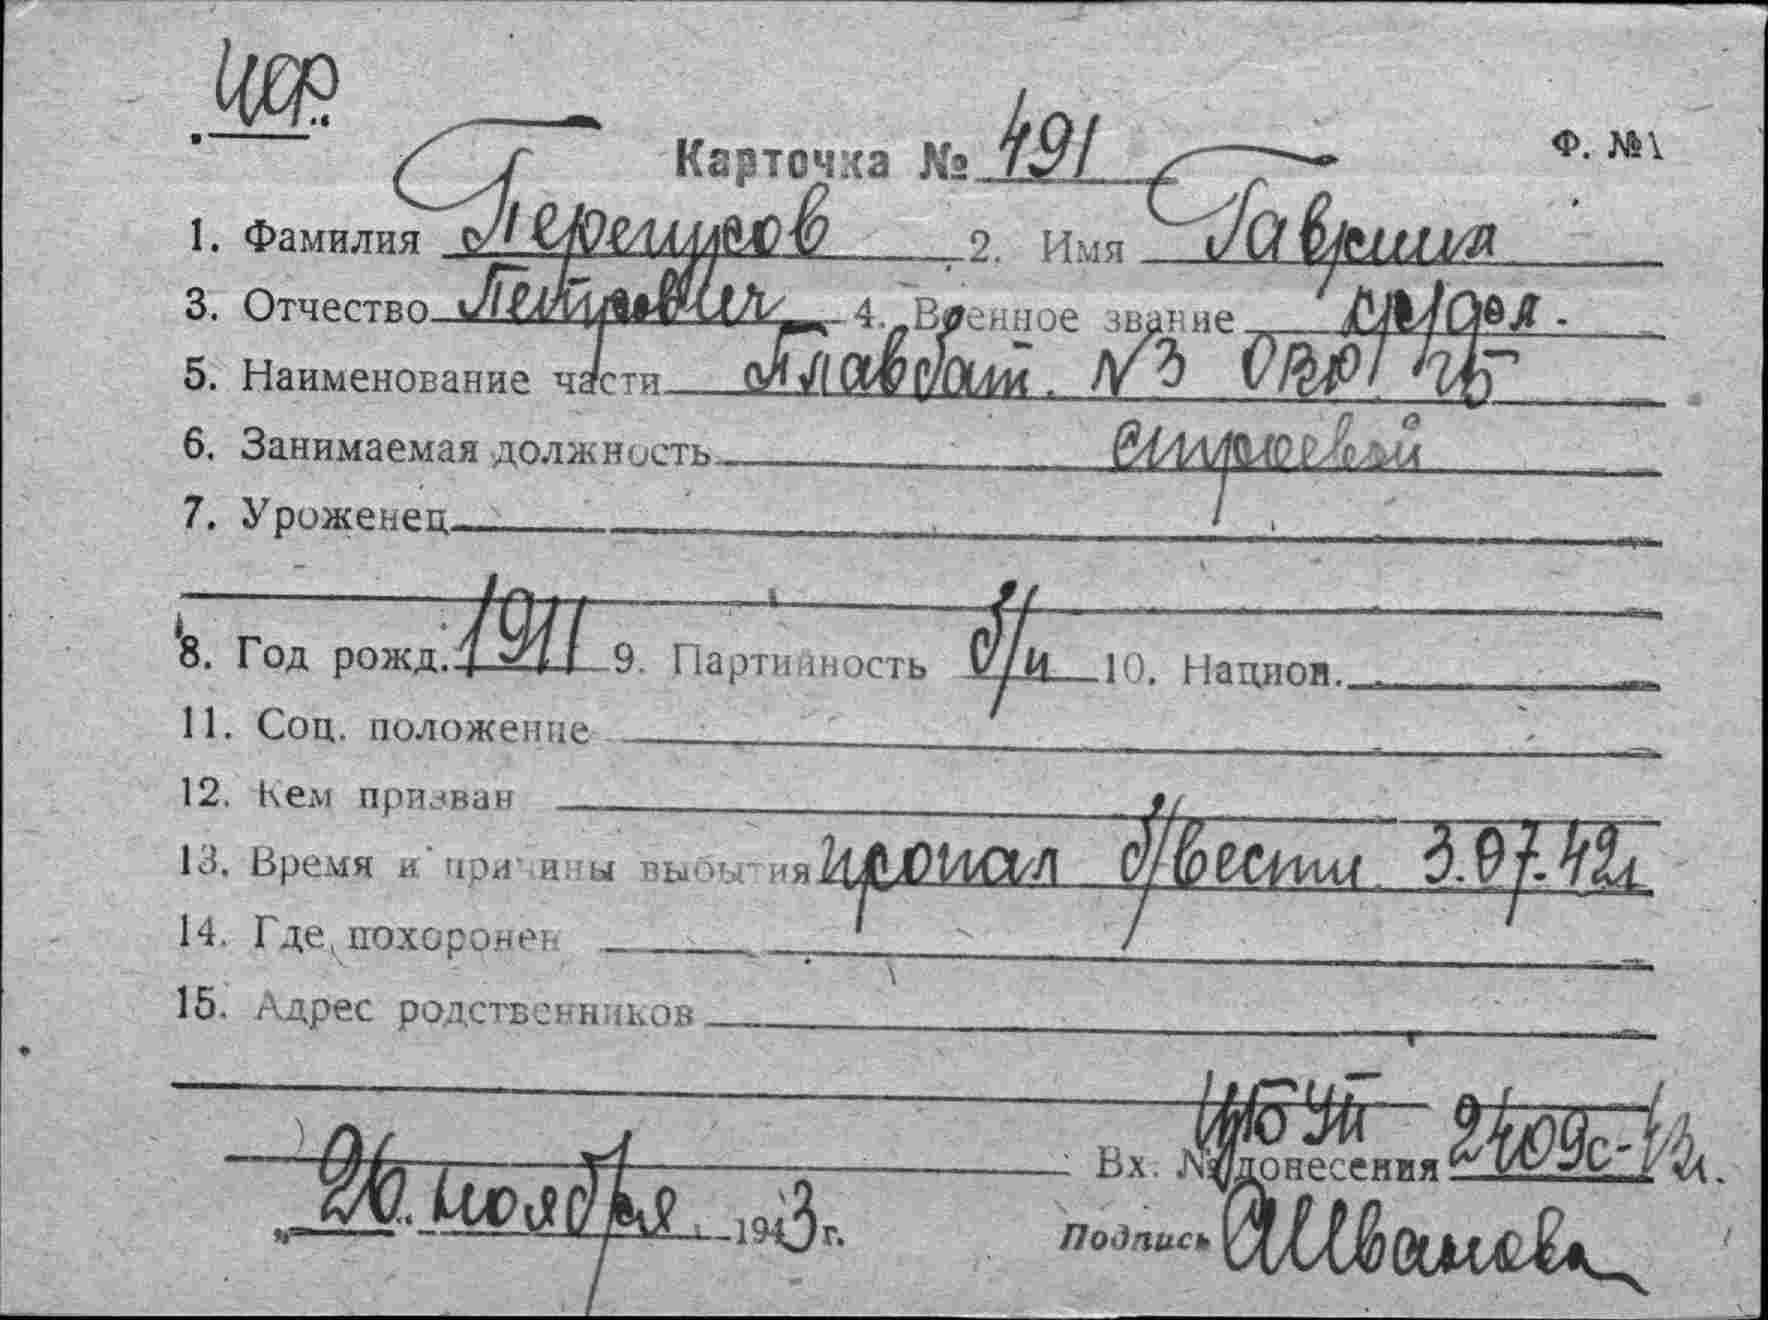 Карточка № 491 Ф. №1
1. Фамилия 2. Имя Гавриил
3. Отчество Петрович 4. Военное звание
5. Наименование части Плавбат. №3 ОВР ЧБ
6. Занимаемая должность строевой
7. Уроженец
8. Год рожд. 1911 9. Партийность б/п 10. Национ.
11. Соц. положение
12. Кем призван
13. Время и причины выбытия пропал б/вести 3.07.42г
14. Где похоронен
15. Адрес родственников
Вх. № донесения 2409с-43г.
„26. ноября 1943 г. Подпись АИванова